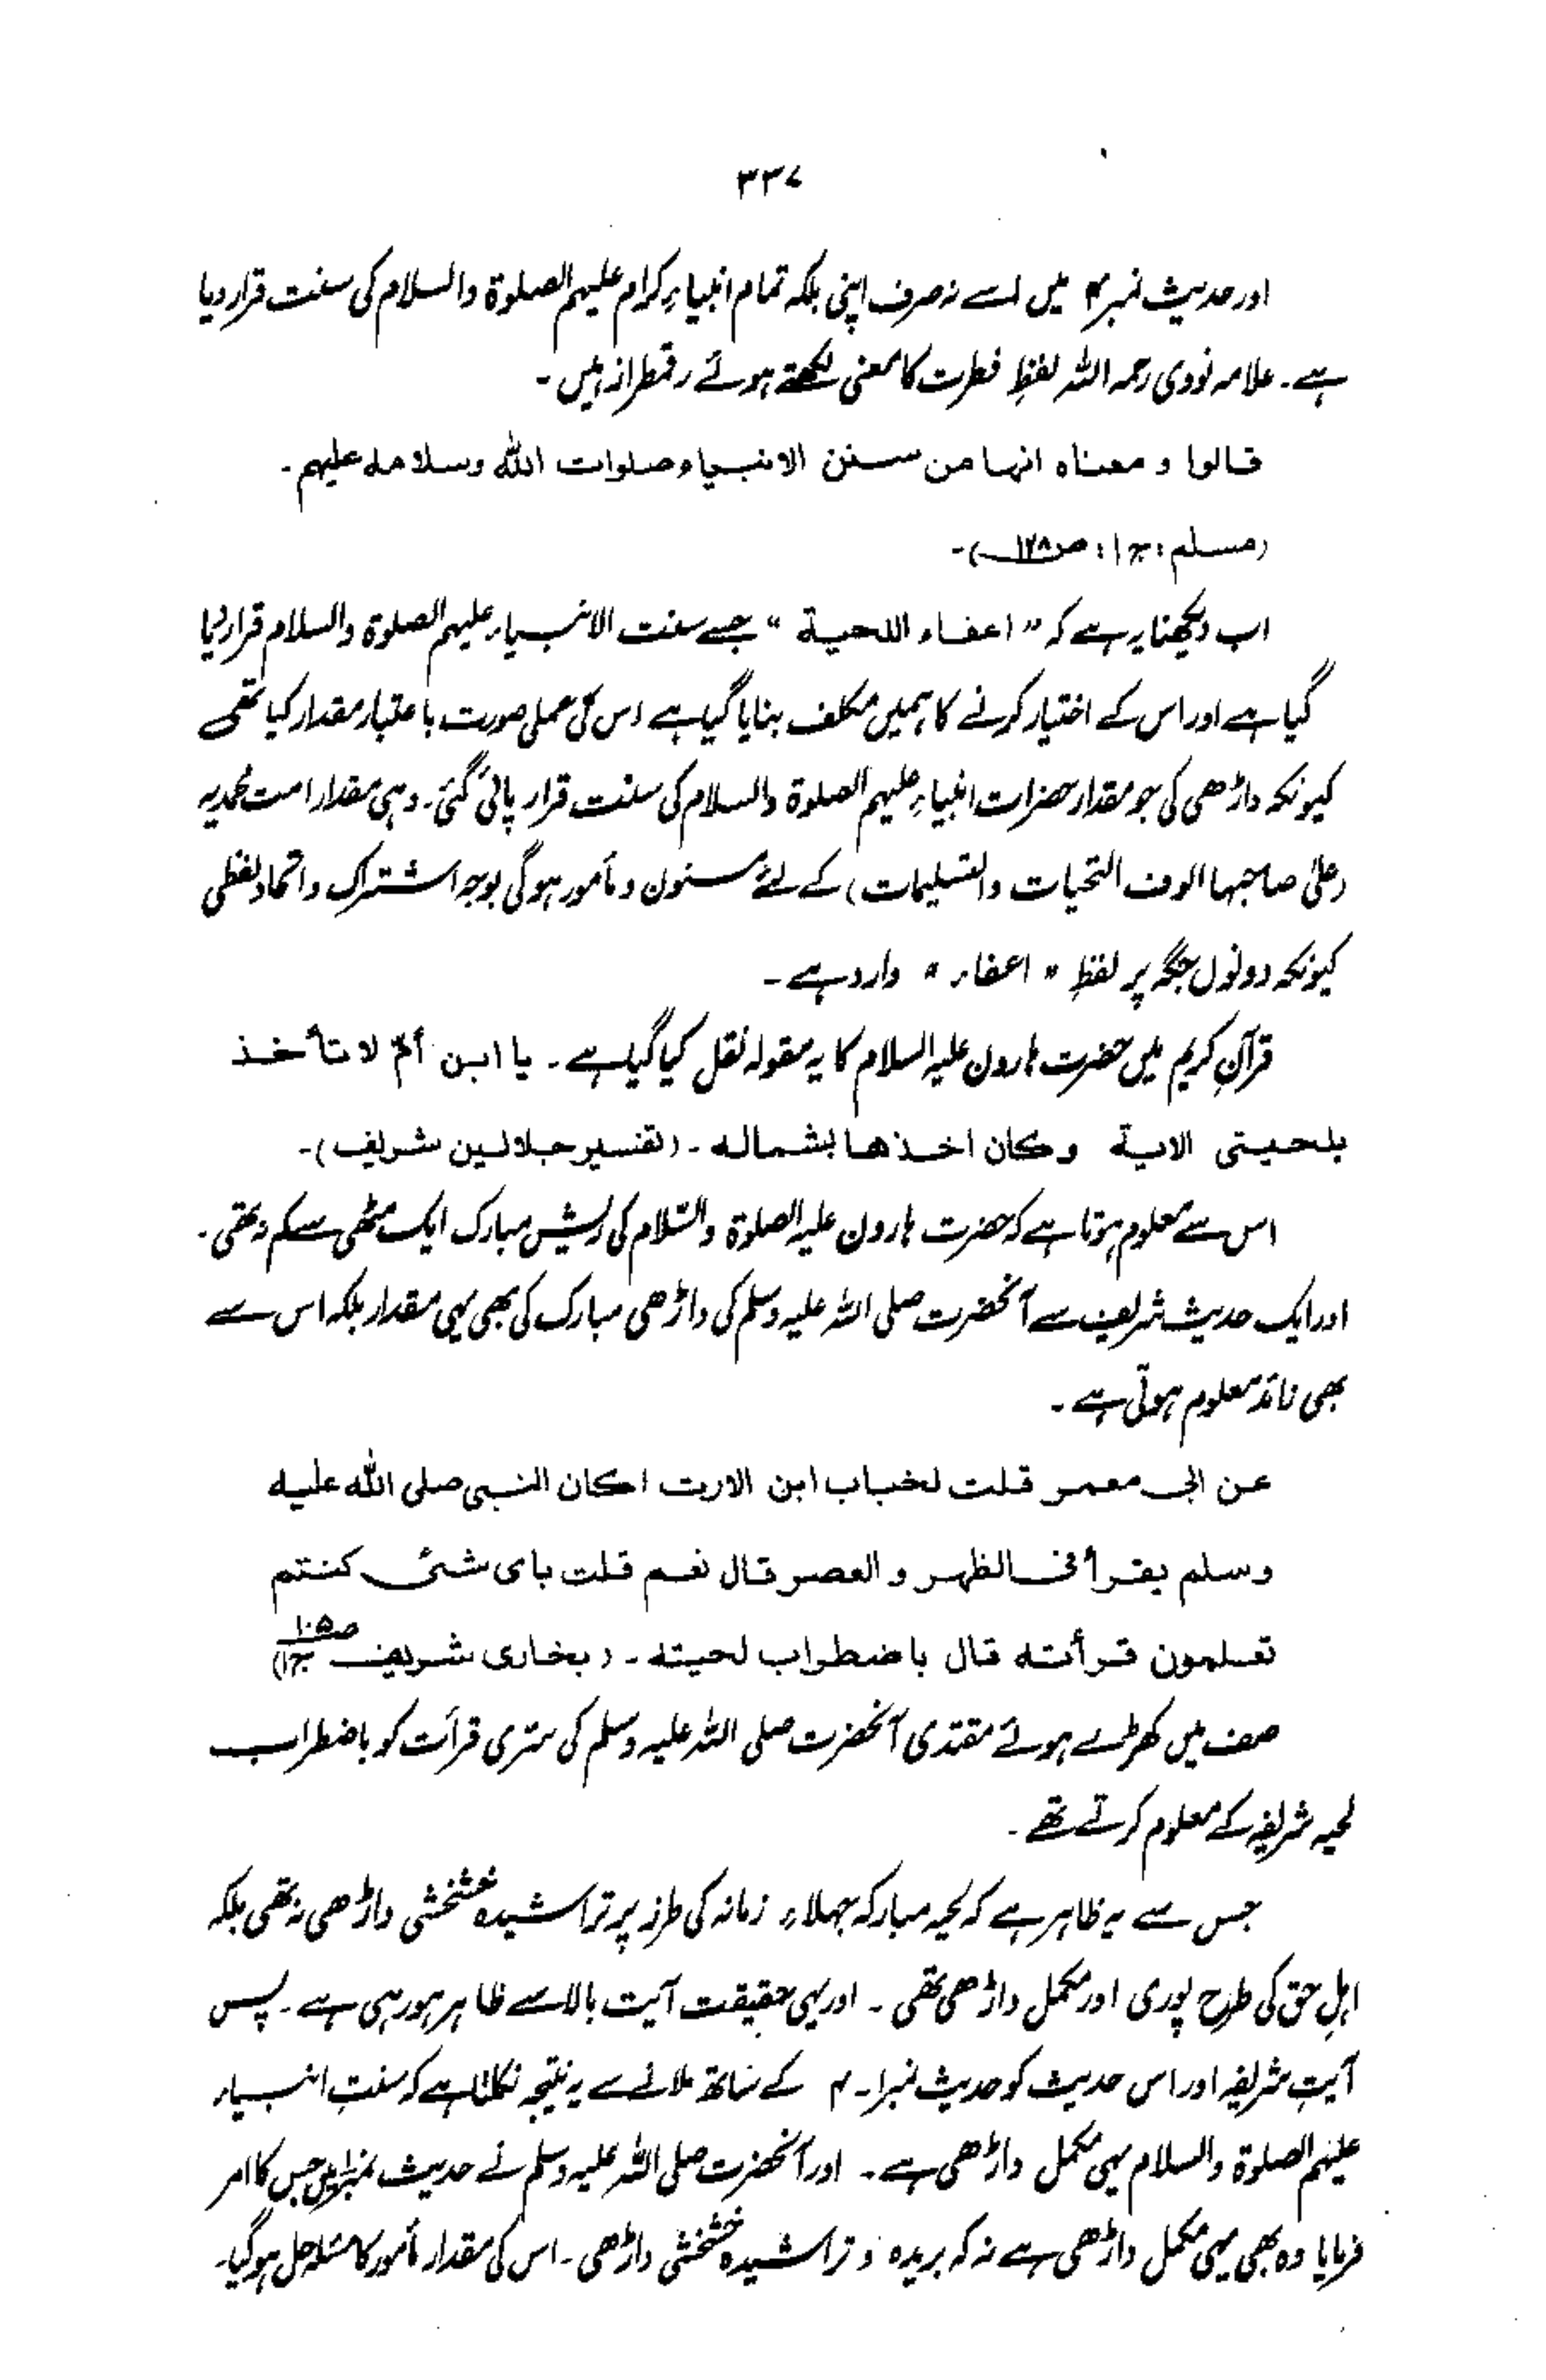 ۳۳۷
اور حدیث نمبر۴ میں اسے نہ صرف اپنی بلکہ تمام انبیاءِ کرام علیہم الصلوۃ والسلام کی سنت قرار دیا
ہے۔ علامہ نووی رحمہ اللہ لفظِ فطرت کا معنی لکھتے ہوئے رقمطراز ہیں۔
قالوا و معناه انها من سنن الانبياء صلوات الله وسلامه عليهم۔
(مسلم: ج۱: ص۱۲۸)۔
اب دیکھنا یہ ہے کہ "اعفاء اللحية" جسے سنت الانبیاء علیہم الصلوۃ والسلام قرار دیا
گیا ہے اور اس کے اختیار کرنے کا ہمیں مکلف بنایا گیا ہے اس کی عملی صورت باعتبار مقدار کیا تھی
کیونکہ داڑھی کی جو مقدار حضرات انبیاءِ علیہم الصلوۃ والسلام کی سنت قرار پائی گئی۔ وہی مقدار امت محمدیہ
(علیٰ صاحبہا الوف التحیات والتسلیمات) کے لئے مسنون و مأمور ہوگی بوجہ اشتراک و اتحاد لفظی
کیونکہ دونوں جگہ پر لفظِ "اعفاء" وارد ہے۔
قرآنِ کریم میں حضرت ہارون علیہ السلام کا یہ مقولہ نقل کیا گیا ہے۔ یا ابن أمّ لا تأخذ
بلحيتى الاية وكان اخذها بشماله۔ (تفسیر جلالین شریف)۔
اس سے معلوم ہوتا ہے کہ حضرت ہارون علیہ الصلوۃ والسّلام کی ریش مبارک ایک مٹھی سے کم نہ تھی۔
اور ایک حدیث شریف سے آنحضرت صلی اللہ علیہ وسلم کی داڑھی مبارک کی بھی یہی مقدار بلکہ اس سے
بھی زائد معلوم ہوتی ہے۔
عن ابى معمر قلت لخباب ابن الارت اكان النبى صلى الله عليه
وسلم يقرأ فى الظهر والعصر قال نعم قلت باى شئ كنتم
تعلمون قرأته قال باضطراب لحيته۔ (بخاری شریف ص۱۰۵ ج۱)
صف میں کھڑے ہوئے مقتدی آنحضرت صلی اللہ علیہ وسلم کی سرّی قرأت کو باضطراب
لحیہ شریفہ کے معلوم کرتے تھے۔
جس سے یہ ظاہر ہے کہ لحیہ مبارکہ جہلاءِ زمانہ کی طرز پر تراشیدہ خشخشی داڑھی نہ تھی بلکہ
اہلِ حق کی طرح پوری اور مکمل داڑھی تھی۔ اور یہی حقیقت آیت بالا سے ظاہر ہو رہی ہے۔ پس
آیت شریفہ اور اس حدیث کو حدیث نمبر۱۔۴ کے ساتھ ملانے سے یہ نتیجہ نکلتا ہے کہ سنتِ انبیاء
علیہم الصلوۃ والسلام یہی مکمل داڑھی ہے۔ اور آنحضرت صلی اللہ علیہ وسلم نے حدیث نمبر۱ میں جس کا امر
فرمایا وہ بھی یہی مکمل داڑھی ہے نہ کہ بریدہ و تراشیدہ خشخشی داڑھی۔ اس کی مقدار مأمور کا مسئلہ حل ہوگیا۔